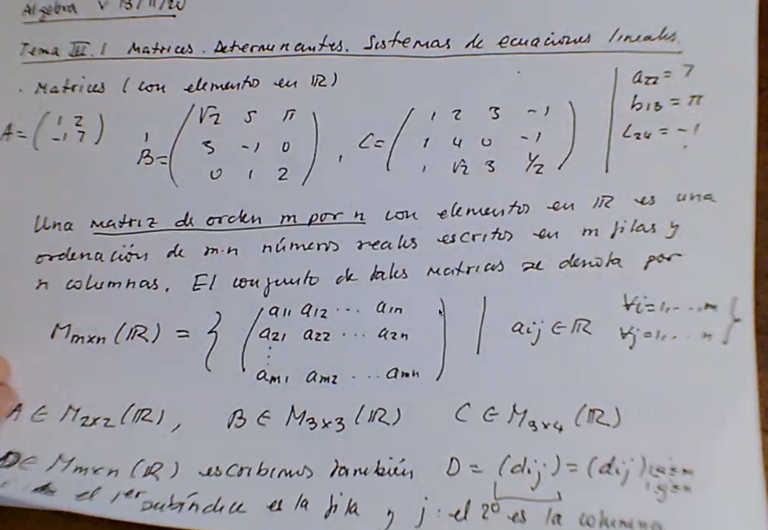 Algebra V 13/11/20
Tema III.1 Matrices. Determinantes. Sistemas de ecuaciones lineales.
· Matrices (con elementos en ℝ)
A = ( 1 2 ; -1 7 ) , B = ( √2 5 π ; 3 -1 0 ; 0 1 2 ) , C = ( 1 2 3 -1 ; 1 4 0 -1 ; 1 √2 3 1/2 ) | a22 = 7
b13 = π
c24 = -1
Una matriz de orden m por n con elementos en ℝ es una
ordenación de m·n números reales escritos en m filas y
n columnas. El conjunto de tales matrices se denota por
Mmxn (ℝ) = { ( a11 a12 ... a1n ; a21 a22 ... a2n ; ⋮ ; am1 am2 ... amn ) | aij ∈ ℝ ∀i=1,...,m ∀j=1,...n }
A ∈ M2x2 (ℝ), B ∈ M3x3 (ℝ) C ∈ M3x4 (ℝ)
D ∈ Mmxn (ℝ) escribimos también D = (dij) = (dij)
el 1er subíndice es la fila y j: el 2º es la columna